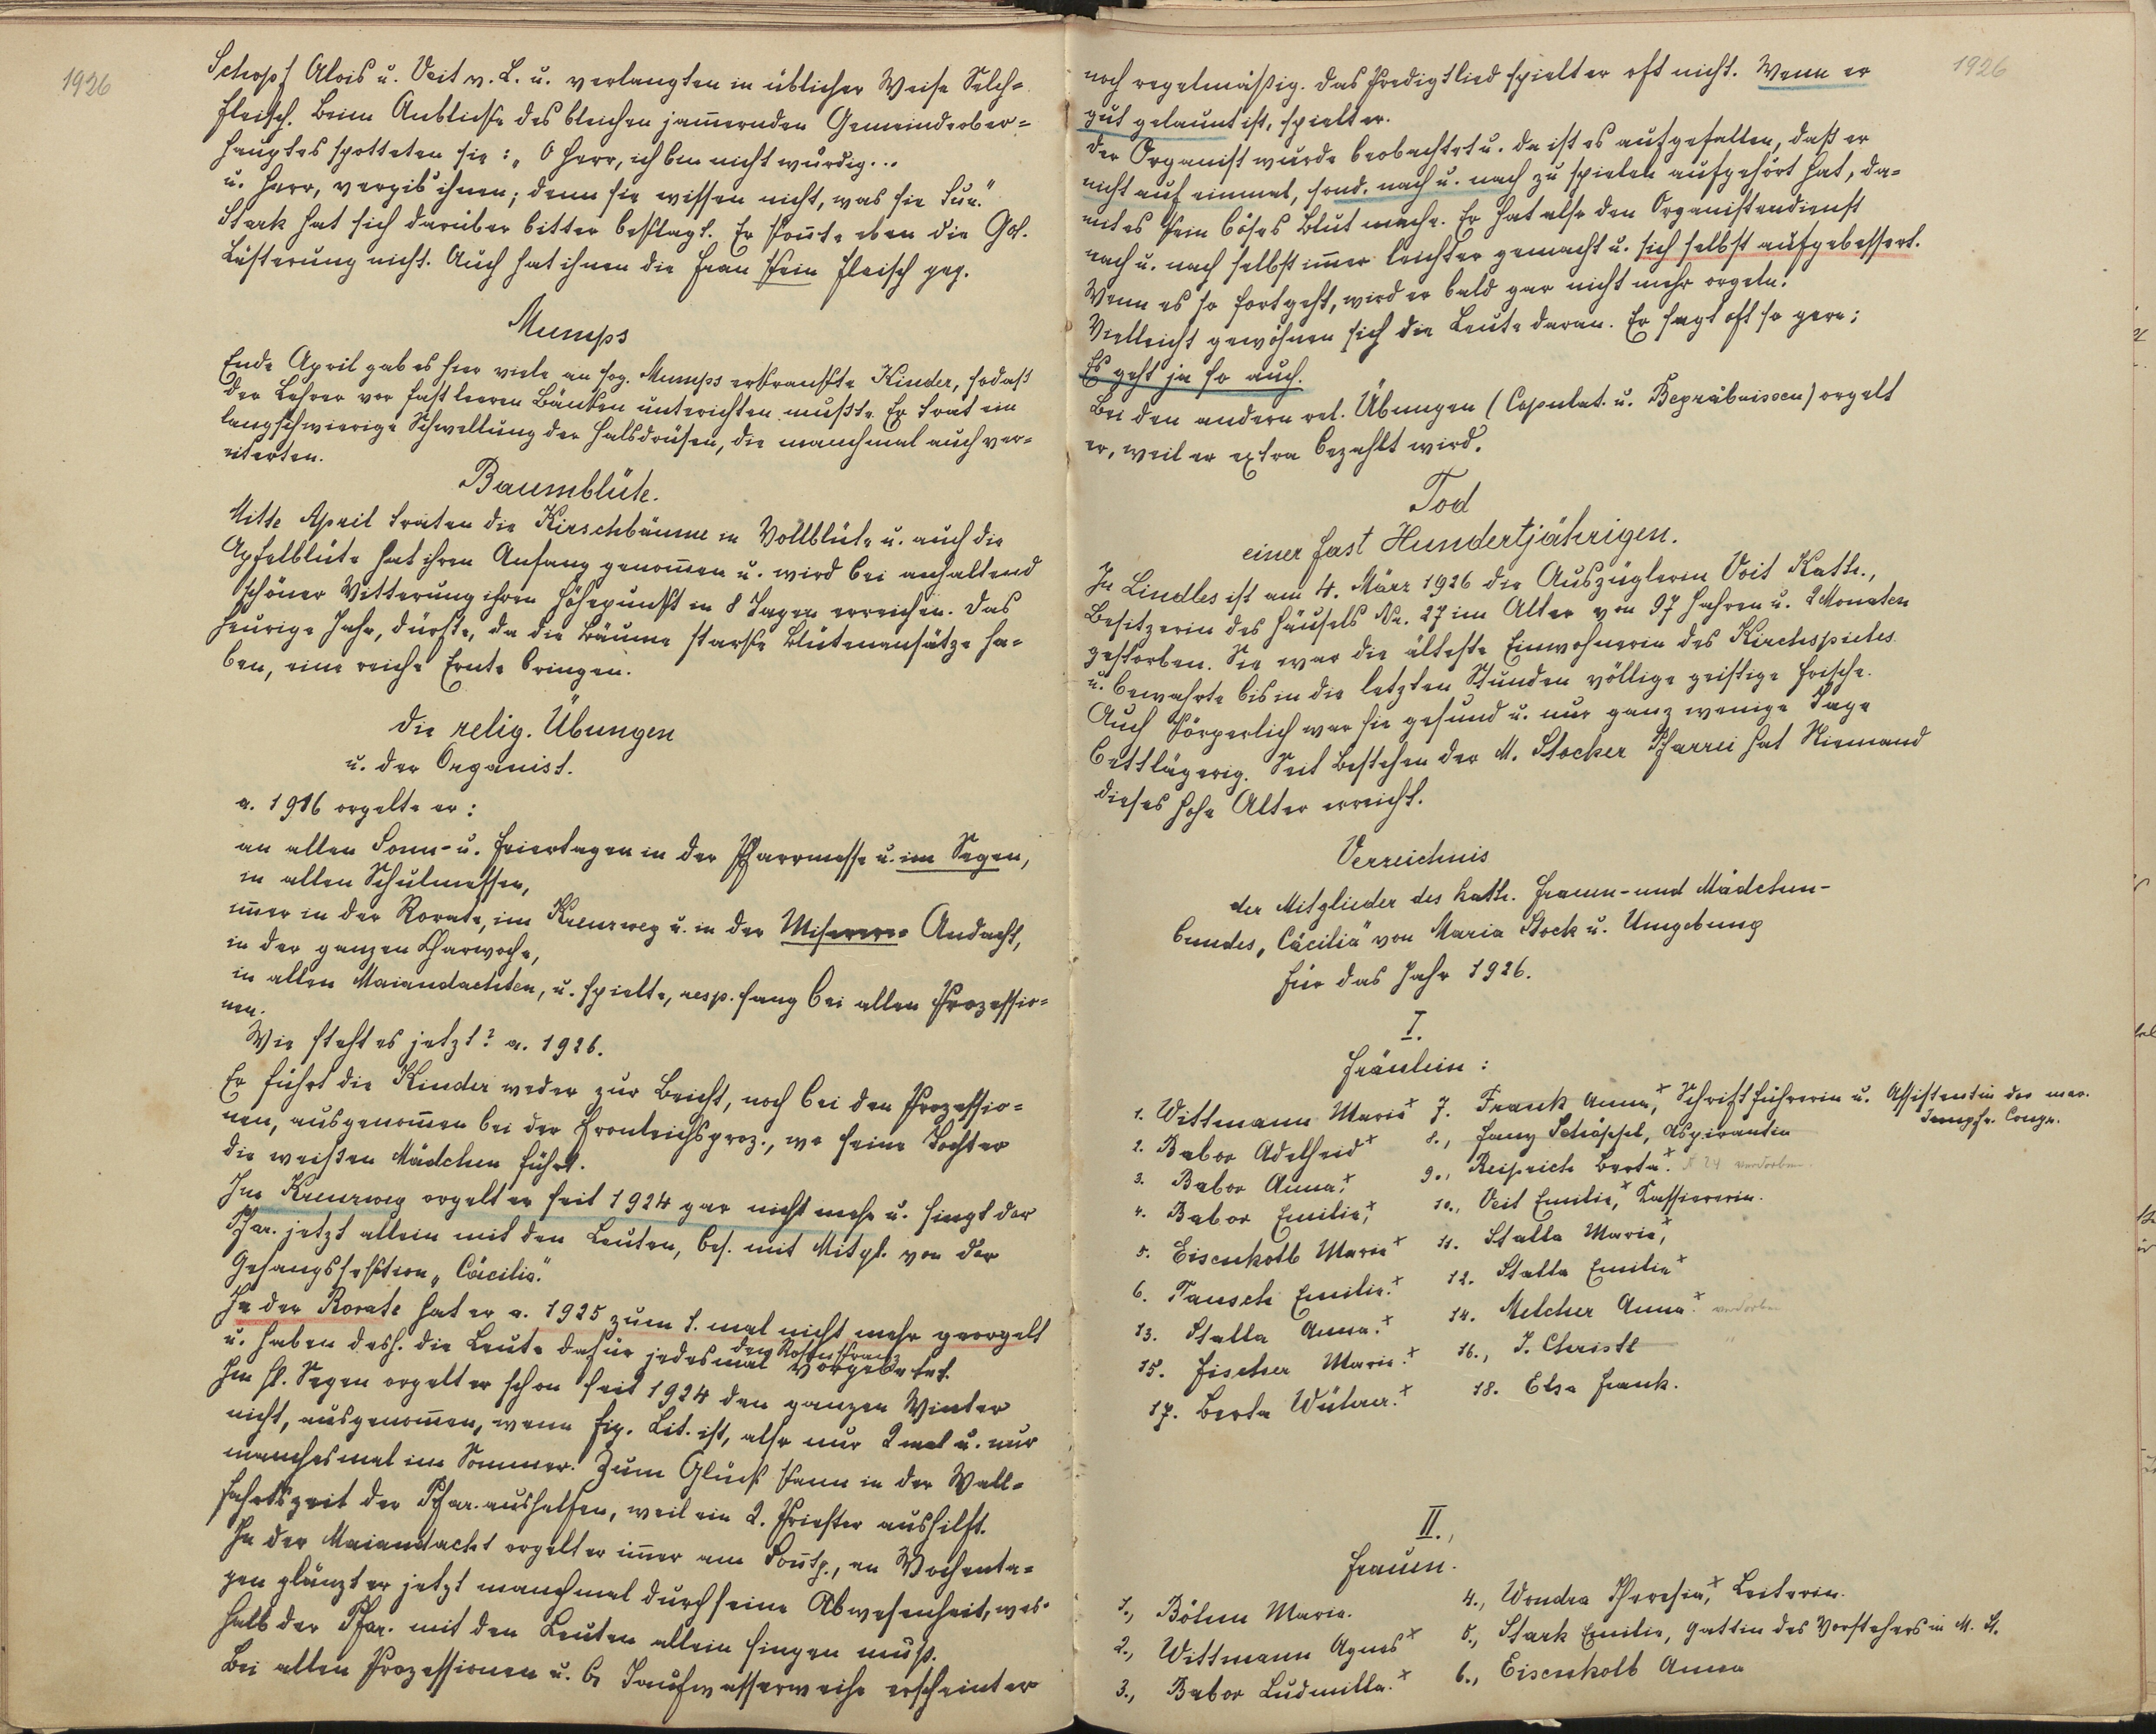 1926
Schopf Alois u. Veit v. L. u. verlangten in üblicher Weise Selch=
fleisch. Beim Anblicke des bleichen jam̄ernden Gemeindeober=
hauptes spotteten sie: „O Herr, ich bin nicht würdig...
u. Herr, vergib ihnen; denn sie wissen nicht, was sie tun."
Stark hat sich darüber bitter beklagt. Er kon̄te eben die
Lästerung nicht. Auch hat ihnen die Frau kein Fleisch geg.
Mumps
Ende April gab es hier viele an sog. Mumps erkrankte Kinder, sodaß
der Lehrer vor fast leeren Bänken unterichten mußte. Er trat ein
langschwierige Schwellung der Halsdrüsen, die manchmal auch ver=
eiterten.
Baumblüte.
Mitte April traten die Kirschbäume in Vollblüte u. auch die
Apfelblüte hat ihren Anfang genom̄en u. wird bei anhaltend
schöner Witterung ihren Höhepunkt in 8 Tagen erreichen. Das
heurige Jahr, dürfte, da die Bäume starke Blütenansätze ha=
ben, eine reiche Ernte bringen.
Die relig. Übungen
u. der Organist.
a. 1916 orgelte er:
an allen Sonn- u. Feiertagen in der Pfarrmesse u. im Segen,
in allen Schulmessen,
im̄er in der Rorate, im Kreuzweg u. in der Miserere= Andacht,
in der ganzen Charwoche,
in allen Maiandachten, u. spielte, resp. sang bei allen Prozessio=
nen.
Wie steht es jetzt? a. 1926.
Er führt die Kinder weder zur Beicht, noch bei den Prozessio=
nen, ausgenom̄en bei der Fronleichsproz., wo seine Tochter
die weißen Mädchen führt.
Im Kreuzweg orgelt er seit 1924 gar nicht mehr u. singt der
Pfar. jetzt allein mit den Leuten, bes. mit Mitgl. von der
Gesangssektion „Cäcilia."
In der Rorate hat er a. 1925 zum 1. mal nicht mehr georgelt
u. haben desh. die Leute dafür jedesmal den Rosenkranz vorgebetet.
Im hl. Segen orgelt er schon seit 1924 den ganzen Winter
nicht, ausgenom̄en, wenn fig. Lit. ist, also nur 2 mal u. nur
manchesmal im Sommer. Zum Glück kann in der Wall=
fahrtszeit der Pfar. aushelfen, weil ein 2. Priester aushilft.
In der Maiandacht orgelt er im̄er am Son̄tg., an Wochenta=
gen glänzt er jetzt manchmal durch seine Abwesenheit, wes=
halb der Pfar. mit den Leuten allein singen muß.
Bei allen Prozessionen u. b. Taufwasserweihe erscheint er
1926
noch regelmäßig. Das Predigtlied spielt er oft nicht. Wenn er
gut gelaunt ist, spielt er.
Der Organist wurde beobachtet u. da ist es aufgefallen, daß er
nicht auf einmal, sond. nach u. nach zu spielen aufgehört hat, da=
mit es kein böses Blut mache. Er hat also den Organistendienst
nach u. nach selbst im̄er leichter gemacht u. sich selbst aufgebessert.
Wenn es so fortgeht, wird er bald gar nicht mehr orgeln.
Vielleicht gewöhnen sich die Leute daran. Er sagt oft so gern:
Es geht ja so auch.
Bei den andern rel. Übungen (Copulat. u. Begräbnissen) orgelt
er, weil er extra bezahlt wird.
Tod
einer fast Hundertjährigen.
In Lindles ist am 4. März 1926 die Auszüglerin Veit Kath.,
Besitzerin des Häusels Nr. 27 im Alter von 97 Jahren u. 2 Monaten
gestorben. Sie war die älteste Einwohnerin des Kirchspieles
u. bewahrte bis in die letzten Stunden völlige geistige Frische.
Auch körperlich war sie gesund u. nur ganz wenige Tage
bettlägerig. Seit Bestehen der M. Stocker Pfarrei hat Niemand
dieses hohe Alter erreicht.
Verzeichnis
der Mitglieder des kath. Frauen- und Mädchen-
bundes „Cäcilia" von Maria Stock u. Umgebung
für das Jahr 1926.
I.
Fräulein:
1. Wittmann Marie x 7. Frank Anna, x Schriftführerin u. Assistentin der mar.
Jungfr. Congr.
2. Babor Adelheid x 8., Fany Schöppl, Aspirantin
3. Babor Anna, x 9., Reiprich Berta. x N 24 verdorben.
4. Babor Emilie, x 10., Veit Emilie, x Kassiererin.
5. Eisenkolb Marie x 11. Stalla Marie, x
6. Tausch Emilie. x 12. Stalla Emilie x
13. Stalla Anna. x 14. Melcher Anna. x verdorben
15. Fischer Marie. x 16., J. Christl "
17. Berta Wührer. x 18. Elsa Frank.
II.,
Frauen.
1., Böhm Marie. 4., Wondra Theresia, x Leiterin.
2., Wittmann Agnes x 5., Stark Emilie, Gattin des Vorstehers in M. St.
3., Babor Ludmilla. x 6., Eisenkolb Anna